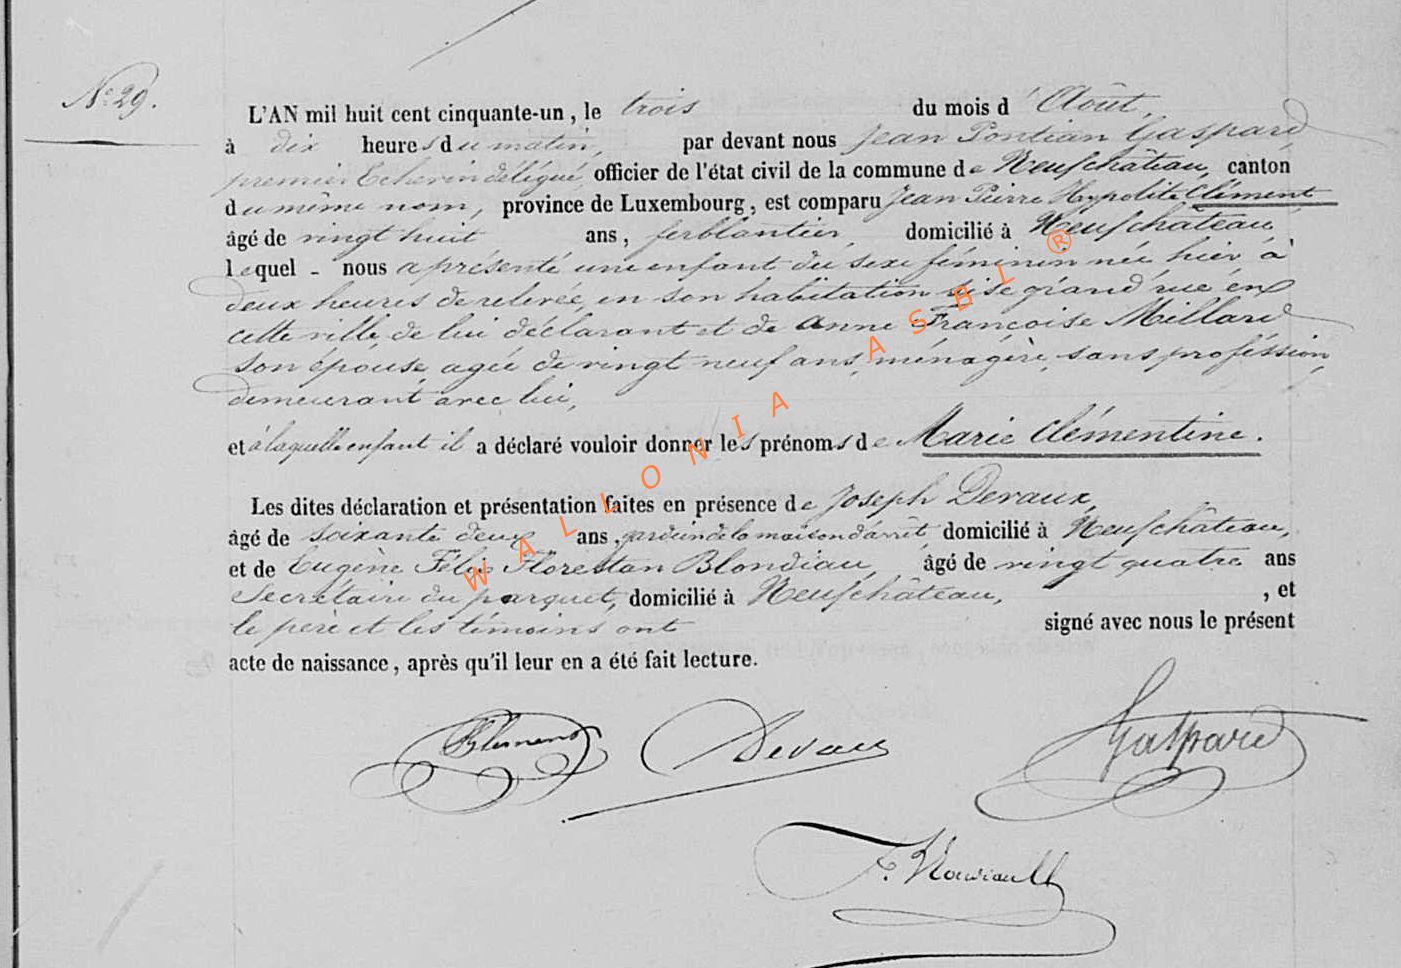 N° 29.
L'AN mil huit cent cinquante-un, le trois du mois d' Août,
à dix heures du matin, par devant nous Jean Pontian Gaspard,
premier Echevin délégué, officier de l'état civil de la commune de Neufchâteau, canton
du même nom, province de Luxembourg, est comparu Jean Pierre Hypolite Clément,
âgé de vingt huit ans, ferblantier, domicilié à Neufchâteau,
lequel - nous a présenté une enfant du sexe féminin née hier à
deux heures de relevée, en son habitation sise grand'rue en
cette ville, de lui déclarant et de Anne Françoise Millard
son épouse, agée de vingt neuf ans, ménagère, sans proféssion,
demeurant avec lui,
et à laquelle enfant il a déclaré vouloir donner les prénoms de Marie Clémentine.
Les dites déclaration et présentation faites en présence de Joseph Devaux,
âgé de soixante deux ans, gardien de la maison d'arrêt, domicilié à Neufchâteau,
et de Eugène Félix Florestan Blondiau, âgé de vingt quatre ans
Secrétaire du parquet, domicilié à Neufchâteau, , et
le père et les témoins ont signé avec nous le présent
acte de naissance, après qu'il leur en a été fait lecture.
Clément Devaux Gaspard
WALLONIA ASBL ®